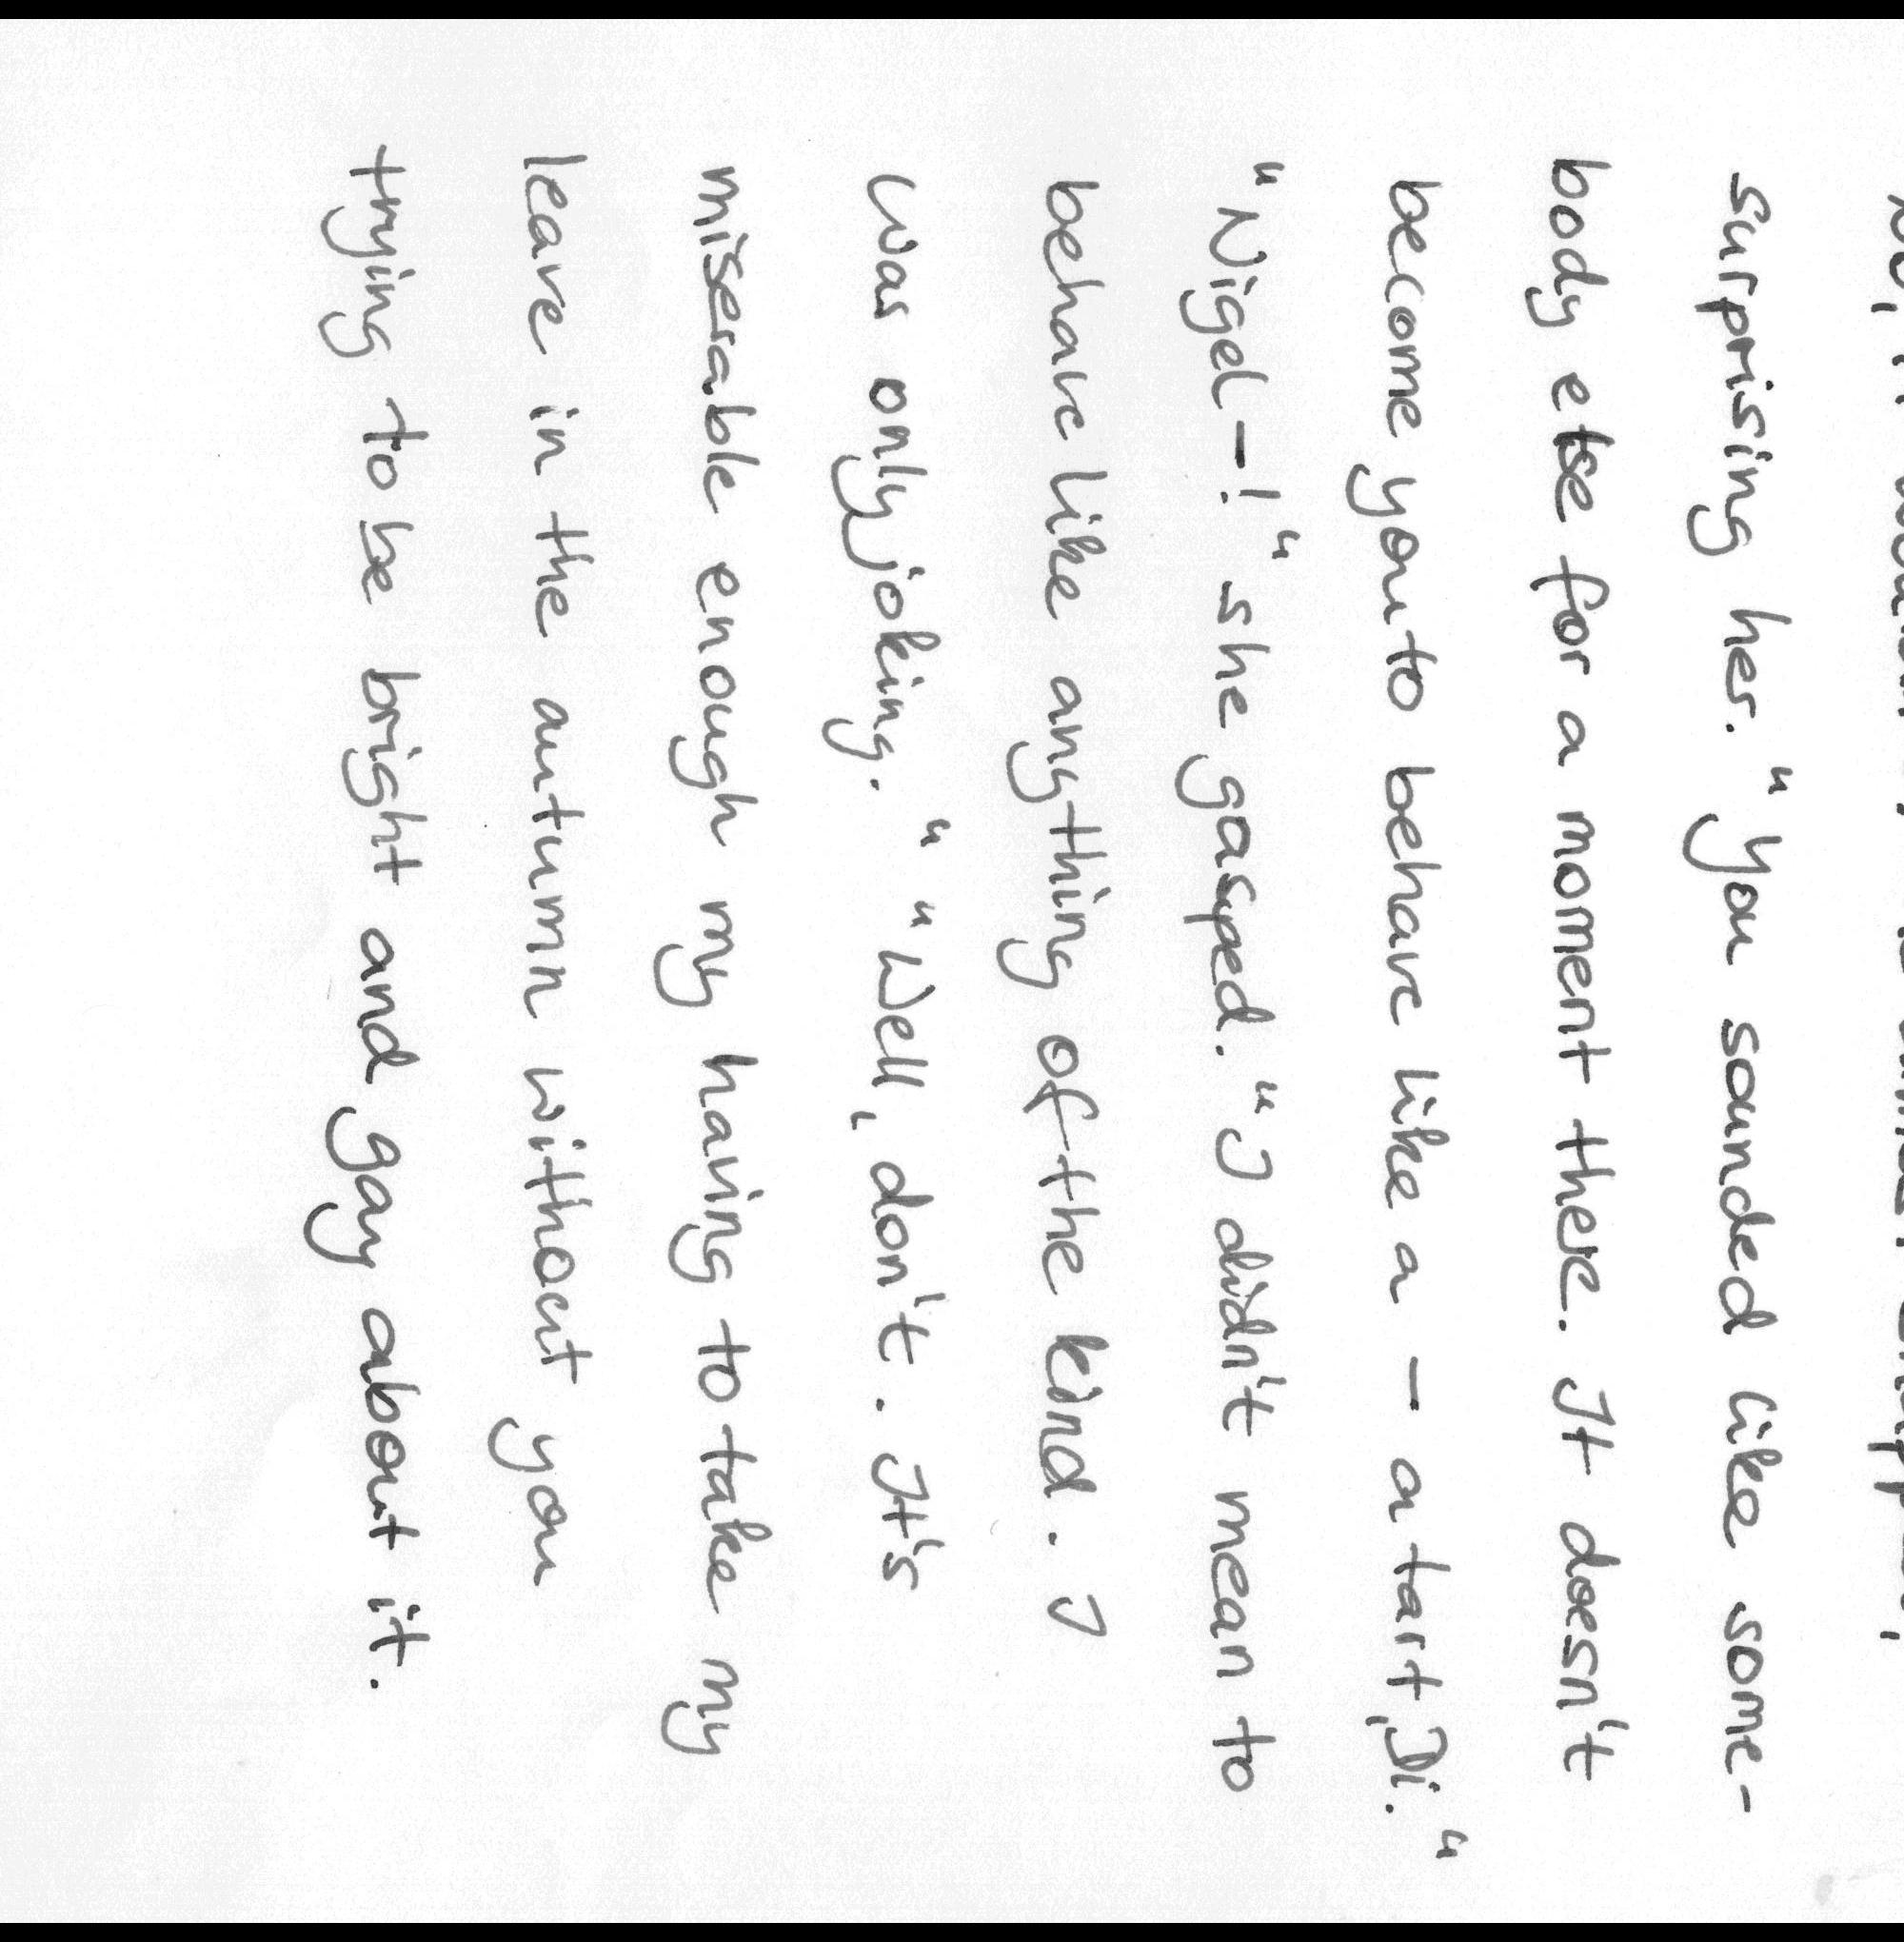 surprising her. "You sounded like some-
body else for a moment there. It doesn't
become you to behave like a - a tart, Di."
"Nigel-!" she gasped. "I didn't mean to
behave like anything of the kind. I
was only joking." "Well, don't. It's
miserable enough my having to take my
leave in the autumn without you
trying to be bright and gay about it.